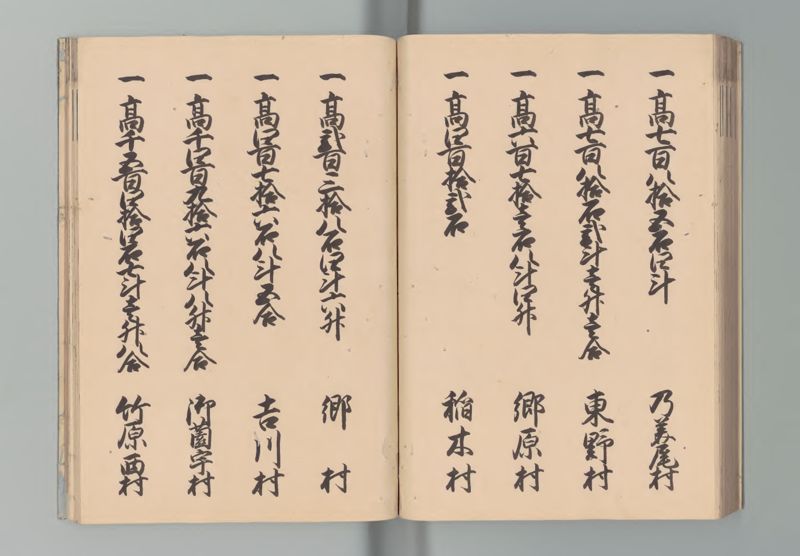 一 高七百八拾五石四斗 乃美尾村
一 高七百八拾石弐斗壱升壱合 東野村
一 高六百七拾壱石八斗四升 郷原村
一 高四百拾弐石 稲木村
一 高弐百二拾八石四斗六升 郷村
一 高四百七拾六石八斗五合 吉川村
一 高千四百九拾六石八斗八升壱合 御薗宇村
一 高千五百四拾四石七斗壱升八合 竹原西村